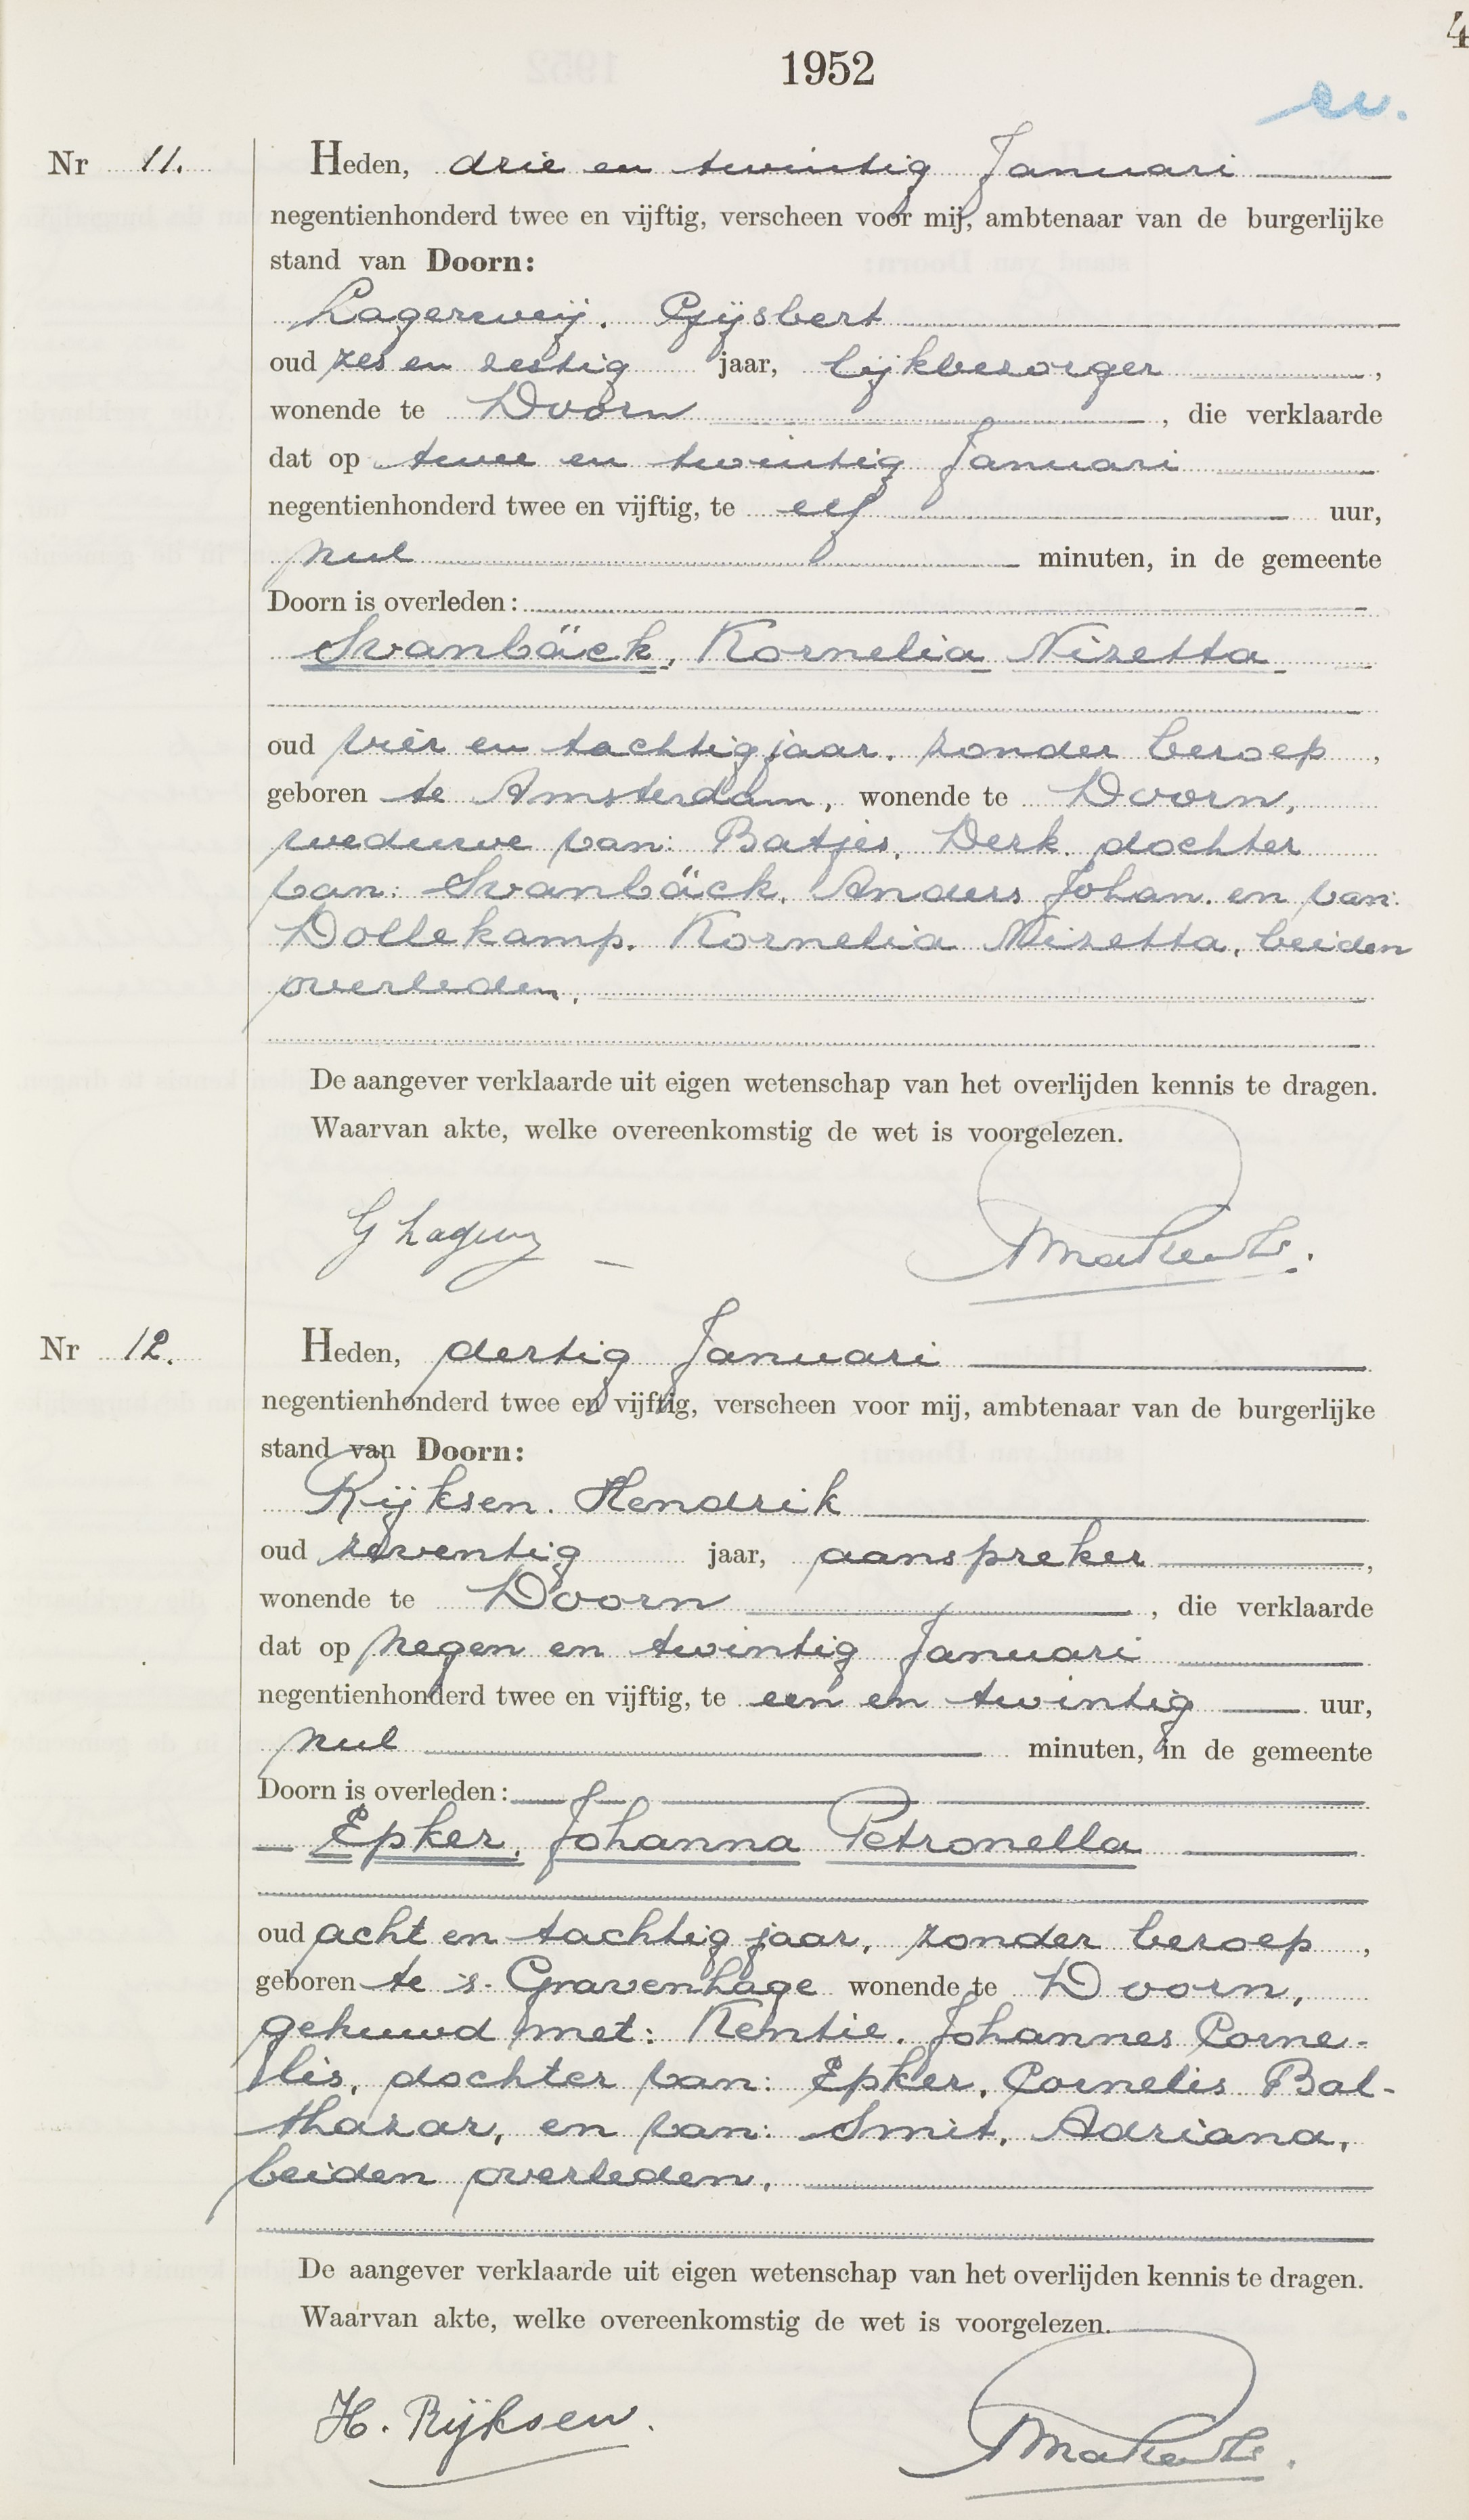 4
1952
ev.
Nr 11.
Heden, drie en twintig Januari
negentienhonderd twee en vijftig, verscheen voor mij, ambtenaar van de burgerlijke
stand van Doorn:
Lagerweij. Gijsbert
oud zes en zestig jaar, lijkbezorger,
wonende te Doorn, die verklaarde
dat op twee en twintig Januari
negentienhonderd twee en vijftig, te elf uur,
nul minuten, in de gemeente
Doorn is overleden:
Svanbäck, Kornelia Nizetta
oud vier en tachtig jaar. zonder beroep,
geboren te Amsterdam, wonende te Doorn,
weduwe van: Batjes, Derk. dochter
van: Svanbäck, Anders Johan. en van:
Dollekamp. Kornelia Nizetta, beiden
overleden.
De aangever verklaarde uit eigen wetenschap van het overlijden kennis te dragen.
Waarvan akte, welke overeenkomstig de wet is voorgelezen.
Nr 12.
Heden, dertig Januari
negentienhonderd twee en vijftig, verscheen voor mij, ambtenaar van de burgerlijke
stand van Doorn:
Rijksen. Hendrik
oud zeventig jaar, aanspreker,
wonende te Doorn, die verklaarde
dat op negen en twintig Januari
negentienhonderd twee en vijftig, te een en twintig uur,
nul minuten, in de gemeente
Doorn is overleden:
Epker, Johanna Petronella
oud acht en tachtig jaar, zonder beroep,
geboren te 's-Gravenhage wonende te Doorn,
gehuwd met: Kentie. Johannes Corne-
lis, dochter van: Epker, Cornelis Bal-
thazar, en van: Smit, Adriana,
beiden overleden.
De aangever verklaarde uit eigen wetenschap van het overlijden kennis te dragen.
Waarvan akte, welke overeenkomstig de wet is voorgelezen.
H. Rijksen.